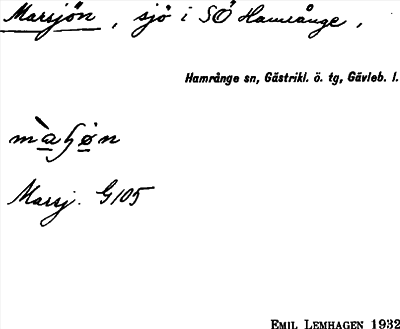 Marsjön, sjö i SÖ Hamrånge,
Hamrånge sn, Gästrikl. ö. tg, Gävleb. l.
Marsj. G105
EMIL LEMHAGEN 1932